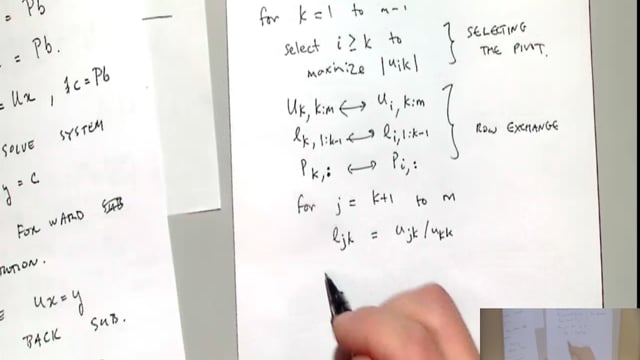 = Pb
= Pb.
= Ux, Lc = Pb
SOLVE SYSTEM
y = c
FORWARD SUB
TUTION.
Ux = y
BACK SUB.
for k = 1 to m-1
select i ≥ k to
maximize |uik|
SELECTING
THE PIVOT.
uk,k:m ⟷ ui,k:m
lk,1:k-1 ⟷ li,1:k-1
Pk,: ⟷ Pi,:
ROW EXCHANGE
for j = k+1 to m
ljk = ujk/ukk